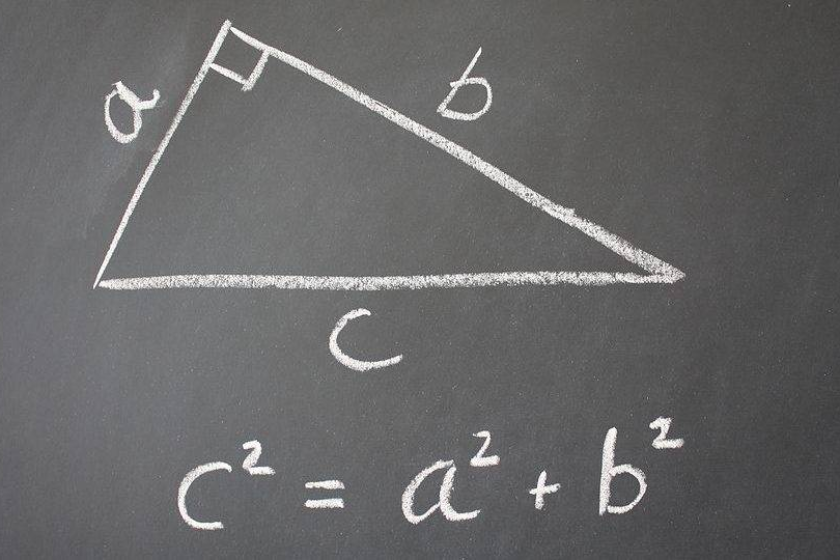 a
b
c
c² = a² + b²